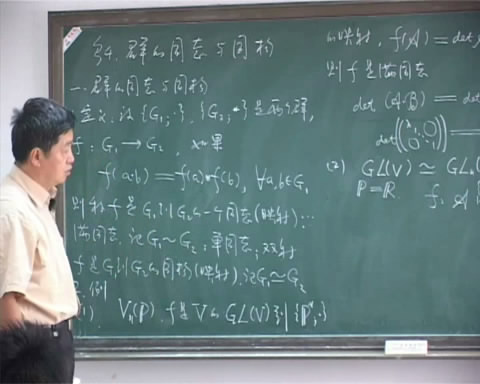 §4. 群的同态与同构
一. 群的同态与同构
定义. 设 {G₁; ·}, {G₂; *} 是两个群,
f : G₁ → G₂, 如果
f(a·b) = f(a)*f(b), ∀a,b∈G₁
则称 f 是G₁到G₂的一个同态(映射)…
满同态, 记G₁~G₂; 单同态; 双射
f 是G₁到G₂的同构(映射), 记G₁≃G₂
例
(1) Vₙ(P). f 是 V 的 GL(V) 到 {P*, ·}
的映射, f(A) = det
则 f 是满同态
det(A·B) = de
det
(2) GL(V) ≃ GLₙ(
P = R. f: A